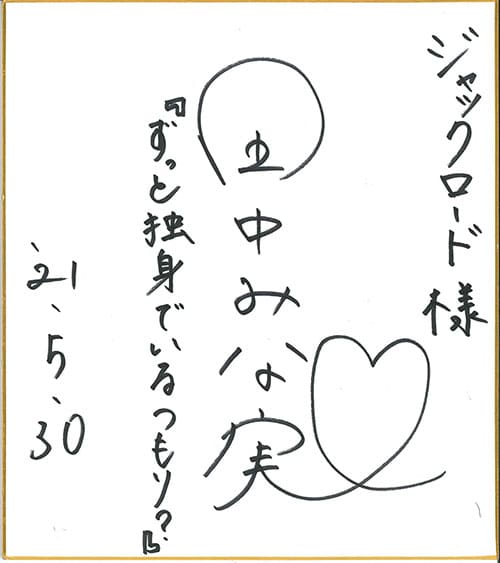 ジャックロード様
田中みな実
『ずっと独身でいるつもり?』
'21、5、30